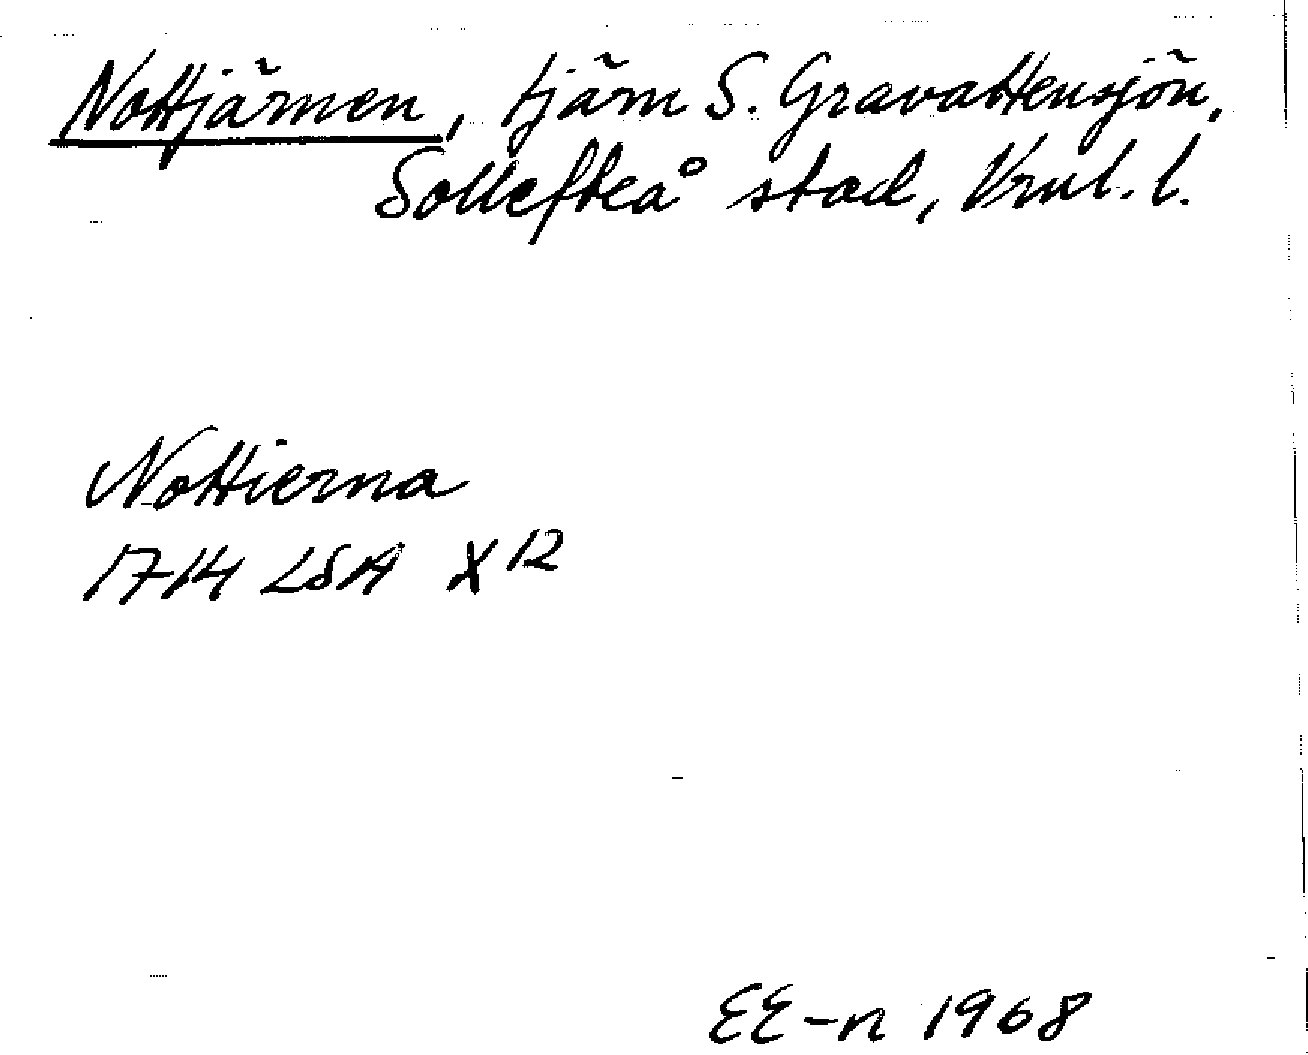 Nottjärnen, tjärn S. Gravattensjön,
Sollefteå stad, Vrnl. l.
Nottierna
1714 LSA X 12
EE-n 1968